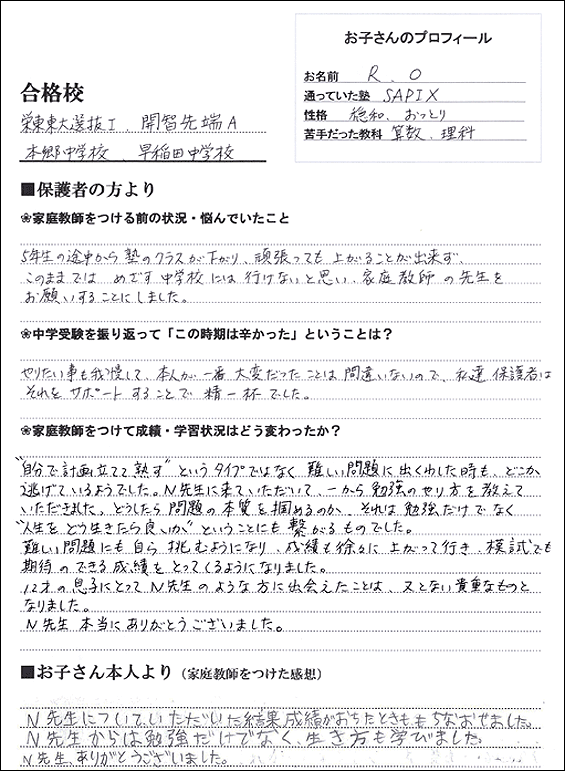 お子さんのプロフィール
お名前 R.O
通っていた塾 SAPIX
性格 穏和、おっとり
苦手だった教科 算数、理科
合格校
栄東東大選抜I、開智先端A
本郷中学校、早稲田中学校
■保護者の方より
❀家庭教師をつける前の状況・悩んでいたこと
5年生の途中から塾のクラスが下がり、頑張っても上がることが出来ず、
このままでは めざす中学校には行けないと思い、家庭教師の先生を
お願いすることにしました。
❀中学受験を振り返って「この時期は辛かった」ということは?
やりたい事も我慢して、本人が一番大変だったことは間違いないので、私達保護者は
それをサポートすることで精一杯でした。
❀家庭教師をつけて成績・学習状況はどう変わったか?
"自分で計画立てて熟す"というタイプではなく難しい問題に出くわした時も、どこか
逃げているようでした。N先生に来ていただいて、一から勉強のやり方を教えて
いただきました。どうしたら問題の本質を掴めるのか、それは勉強だけでなく
"人生をどう生きたら良いか"ということにも繋がるものでした。
難しい問題にも自ら挑むようになり、成績も徐々に上がって行き、模試でも
期待のできる成績をとってくるようになりました。
12才の息子にとってN先生のような方に出会えたことは、又とない貴重なものと
なりました。
N先生 本当にありがとうございました。
■お子さん本人より(家庭教師をつけた感想)
N先生についていただいた結果成績がおちたときももちなおせました。
N先生からは勉強だけでなく、生き方も学びました。
N先生、ありがとうございました。